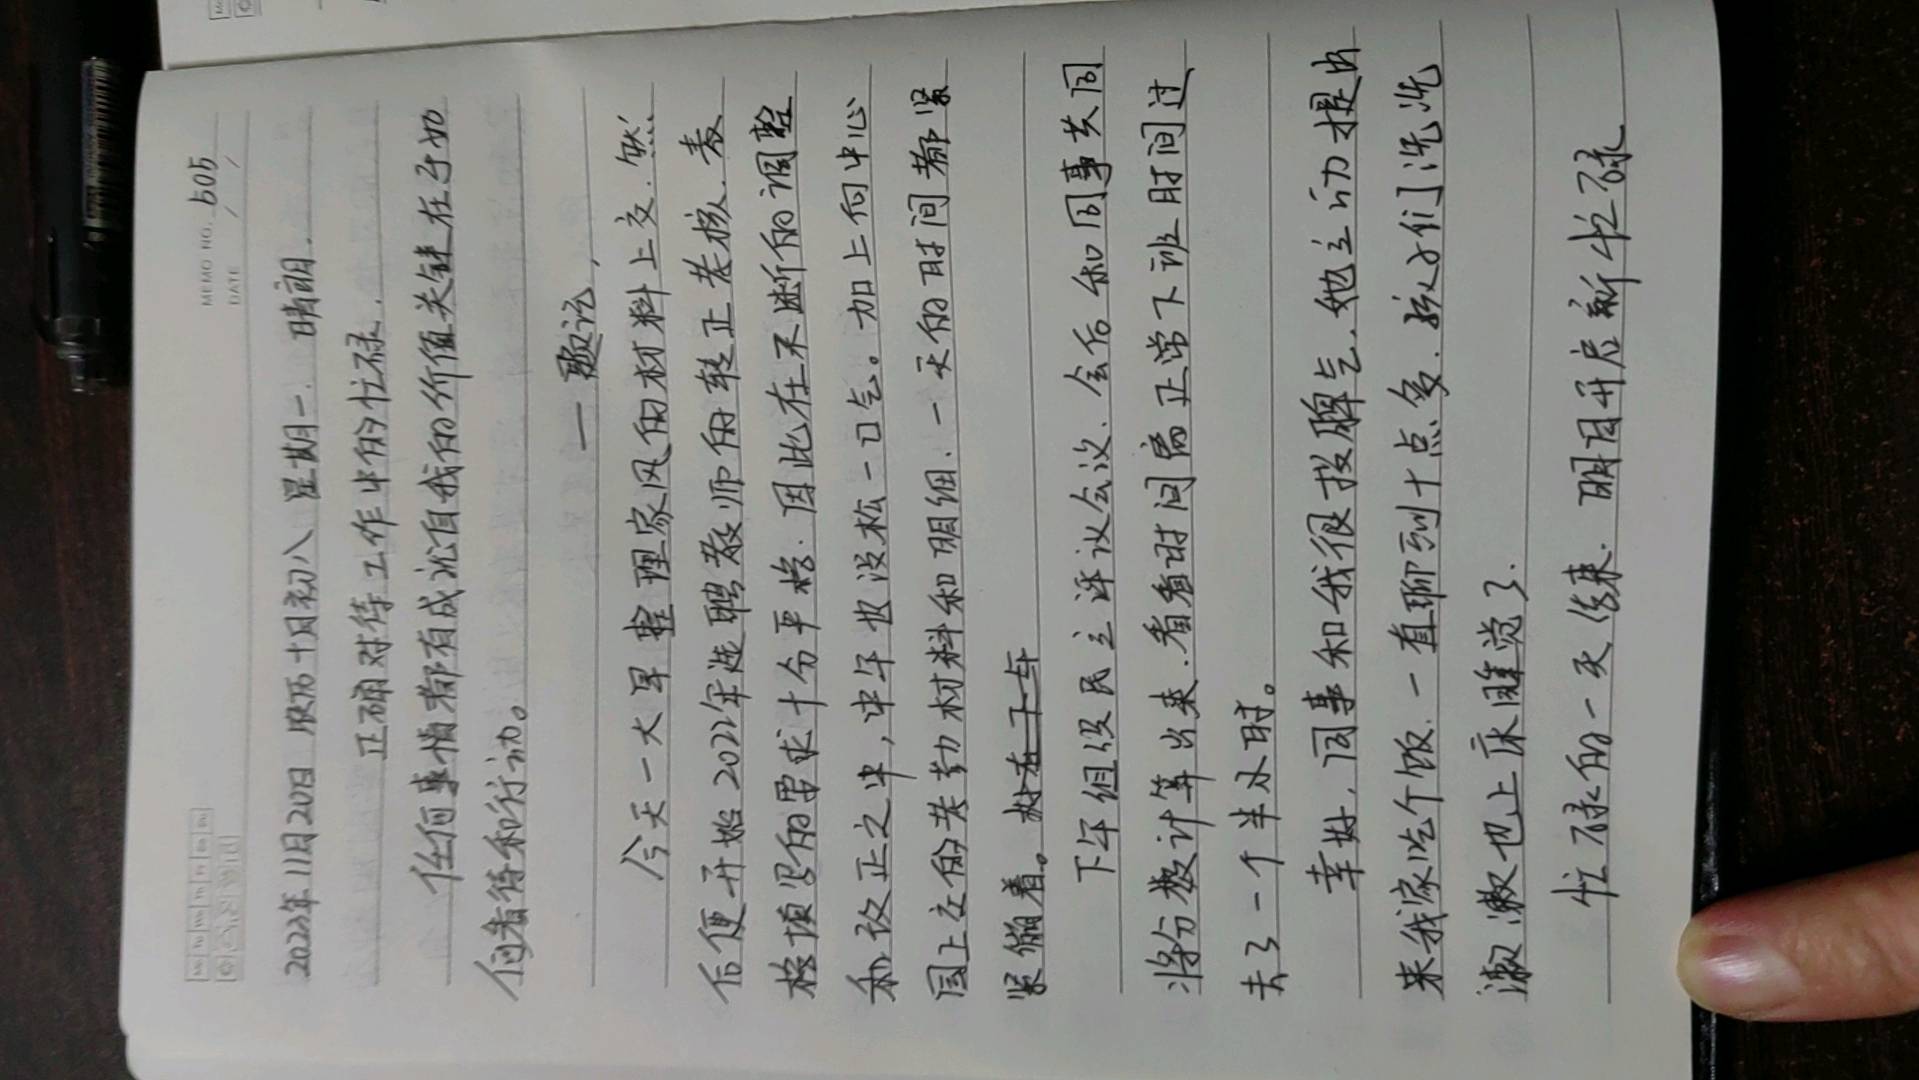 MEMO NO. 505
DATE / /
2023年11月20日 农历十月初八 星期一. 晴朗.
正确对待工作中的忙碌.
任何事情都有成沦自我的价值关键在于如
何看待和行动。
一 题记,
今天一大早整理家风的材料上交. 然
后便开始2022年选聘教师的转正考核. 表
格填写的要求十分严格. 因此在不断的调整
和改正之中, 中午也没松一口气。加上向中心
园上交的考勤材料和明细. 一天的时间都紧
紧绷着。
下午组织民主评议会议. 会后和同事共同
将分数计算出来. 看看时间离正常下班时间过
去了一个半小时。
幸好, 同事和我很投脾气. 她主动提出
来我家吃个饭. 一直聊到十点多. 孩子们洗洗
漱漱也上床睡觉了.
忙碌的一天结束. 明日开启新忙碌